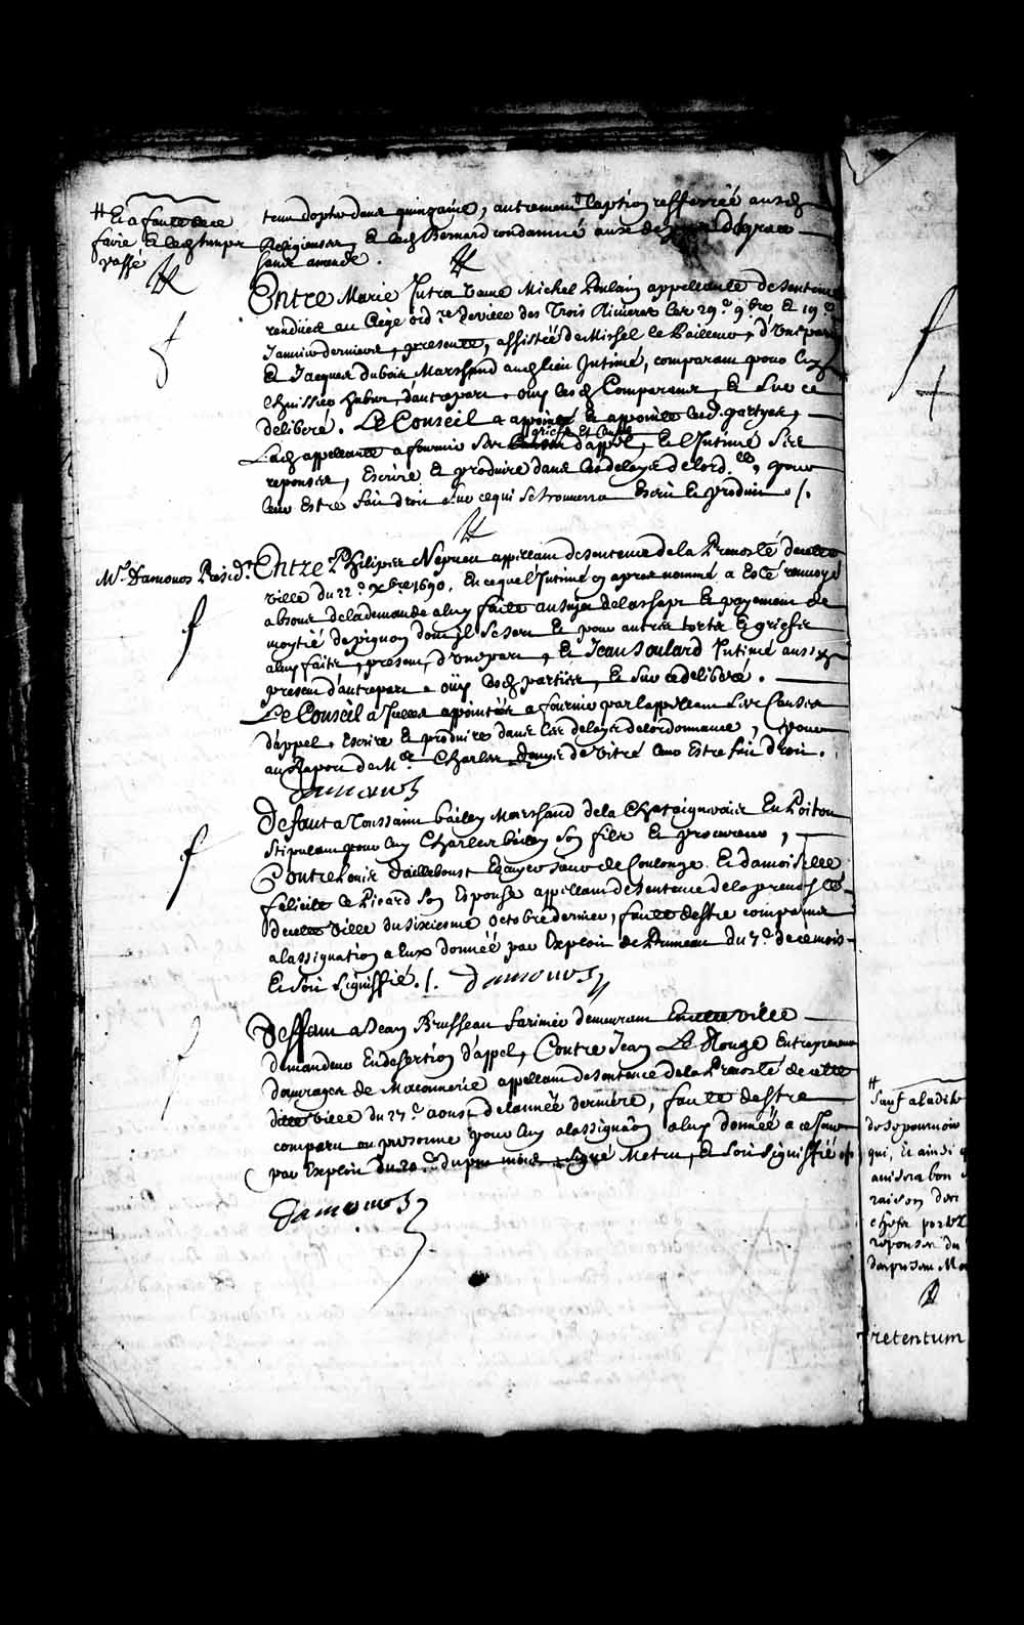 # Et a faute de ce
faire Et led. temps
passé
tenu d'opter dans quinzaine, autrement l'option refferrée ausd.
Religieuses, Et led. Bernard condamné aux despens de grace
sans amende.
Entre Marie Jutra vauve Michel Poulain appellante de sentences
rendües au siège ord.re de ville des Trois Rivieres les 29.e 9.bre Et 19.e
Janvier derniers, presente, assistée de Michel le Pailleur, d'une part
Et Jacques dubois Marchand aud. lieu Intimé, comparant pour luy
l'huissier hubert, d'autrepart. ouy lesd. Comparans, Et sur ce
deliberé. Le Conseil a appointé Et appointe lesd. partyes,
Lad. appellante a fournir ses griefs Et Causes d'appel, Et l'Intimé ses
reponses, Escrire Et produire dans les delays de lord.ce, pour
leur Estre fait droit sur ce qui se trouvera Escrit Et produit ./.
M.r Damours Presid.t
Entre Philippes Nepveu appellant de sentence de la Prevosté de cette
ville du 22.e x.bre 1690. En ce que l'Intimé cy apres nommé a Esté renvoyé
absous de la demande a luy faite au sujet de lachapt Et payement de
moytié de pignon dont il se sert Et pour autres torts Et griefs
a luy faits, present, d'une part, Et Jean Soulard Intimé aussy
present d'autrepart. oüy lesd. parties, Et sur ce deliberé.
Le Conseil a Icelles appointées a fournir par l'appellant ses Causes
d'appel, Escrire Et produire dans les delays de l'ordonnance, pour
au Rapport de M.e Charles Denys de Vitré leur Estre fait droit.
Damours
Defaut a Toussaint bailly Marchand de la Chataigneraie En Poitou
stipulant pour luy Charles bailly son fils Et procureur,
Contre Louis d'ailleboust Escuyer sieur de Coulonge Et damoiselle
felicité le Picard son Espouse appellant de sentence de la prevosté
de cette ville du sixiesme octobre dernier, faute destre comparus
a lassignation a Eux donnée par Exploit de Pruneau du 7.e de ce mois
Et soit signiffié. ./. Damours
Deffaut a Jean Brusseau farinier demeurant En cette ville
demandeur En desertion d'appel, Contre Jean Le Rouge Entrepreneur
d'ouvrages de Maçonnerie appellant de sentence de la Prevosté de cette
ditte ville du 27.e aoust de lannée derniere, faute destre
comparu ou personne pour luy a lassignaõn a luy donnée a ce Jour
par Exploit du 20.e du pnt mois, signé Metru, Et soit signiffié ./.
Damours
#
Sauf a ladite
de se pourvoir
qui, Et ainsi q
avisera bon
raison des
chefs portez
reponses du
du present Mo
retentum